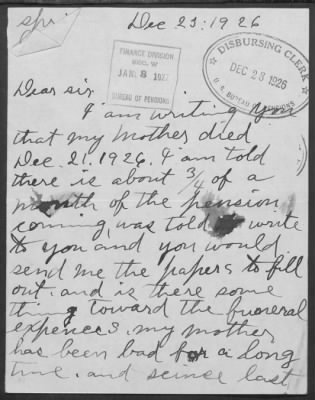 Dec 23: 1926
FINANCE DIVISION
SEC. W
JAN 8 1927
BUREAU OF PENSIONS
DISBURSING CLERK
DEC 28 1926
U.S. BUREAU OF PENSIONS
Dear sir
I am writing you
that my mother died
Dec. 21. 1926. I am told
there is about 3/4 of a
month of the pension
coming, was told to write
to you and you would
send me the papers to fill
out. and is there some
thing toward the funeral
expences. my mother
has been bad for a long
time. and scince last